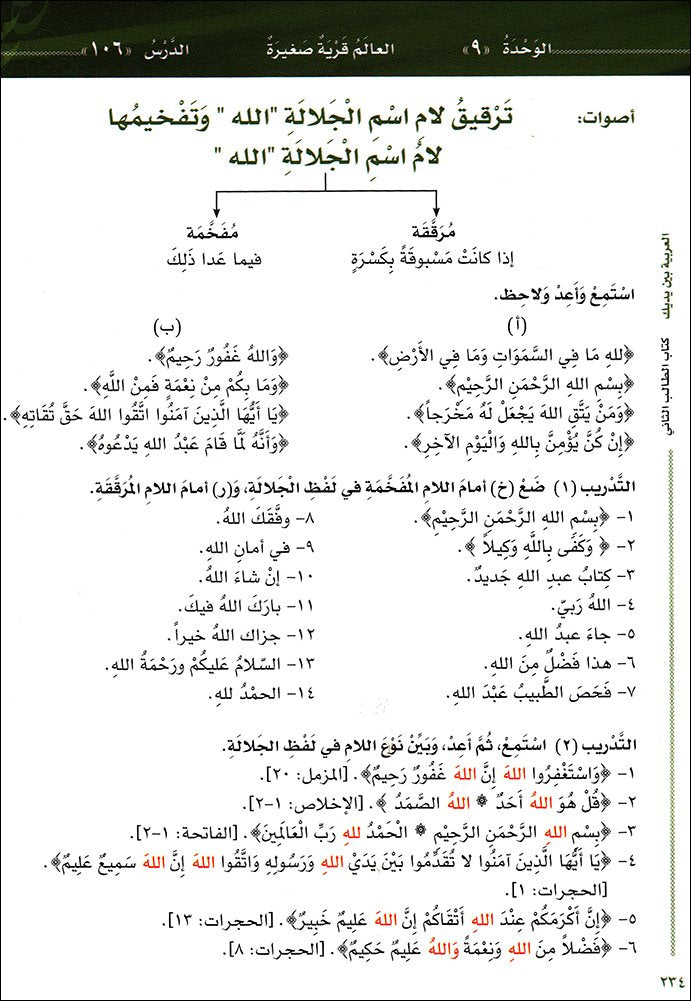 الوَحْدَةُ «٩» العالَمُ قَرْيَةٌ صَغيرَةٌ الدَّرْسُ «١٠٦»
أصوات: تَرْقيقُ لامِ اسْمِ الْجَلالَةِ "الله" وَتَفْخيمُها
لامُ اسْمِ الْجَلالَةِ "الله"
مُرَقَّقَة مُفَخَّمَة
إذا كانَتْ مَسْبوقَةً بِكَسْرَةٍ فيما عَدا ذَلِكَ
اسْتَمِعْ وَأَعِدْ وَلاحِظ.
(أ) (ب)
﴿للهِ مَا فِي السَّمَوَاتِ وَمَا فِي الأَرْضِ﴾. ﴿وَاللهُ غَفُورٌ رَحِيمٌ﴾.
﴿بِسْمِ اللهِ الرَّحْمَنِ الرَّحِيْمِ﴾. ﴿وَمَا بِكُمْ مِنْ نِعْمَةٍ فَمِنْ اللَّهِ﴾.
﴿وَمَنْ يَتَّقِ اللهَ يَجْعَلْ لَهُ مَخْرَجاً﴾. ﴿يَا أَيُّهَا الَّذِينَ آمَنُوا اتَّقُوا اللهَ حَقَّ تُقَاتِهِ﴾.
﴿إِنْ كُنَّ يُؤْمِنَّ بِاللهِ وَالْيَوْمِ الآخِرِ﴾. ﴿وَأَنَّهُ لَمَّا قَامَ عَبْدُ اللهِ يَدْعُوهُ﴾.
التَّدْريب (١) ضَعْ (خ) أمامَ اللامِ المُفَخَّمَةِ في لَفْظِ الجَلالَةِ، وَ(ر) أمامَ اللامِ المُرَقَّقَةِ.
١- ﴿بِسْمِ اللهِ الرَّحْمَنِ الرَّحِيْمِ﴾. ٨- وفَّقَكَ اللهُ.
٢- ﴿وَكَفَى بِاللَّهِ وَكِيلاً﴾. ٩- في أمانِ اللهِ.
٣- كِتابُ عبدِ اللهِ جَديدٌ. ١٠- إنْ شاءَ اللهُ.
٤- اللهُ رَبيّ. ١١- بارَكَ اللهُ فيكَ.
٥- جاءَ عبدُ اللهِ. ١٢- جزاك اللهُ خيراً.
٦- هذا فَضْلٌ مِنَ اللهِ. ١٣- السّلامُ عَليكُمْ ورَحْمَةُ اللهِ.
٧- فَحَصَ الطَّبيبُ عَبْدَ اللهِ. ١٤- الحمْدُ للهِ.
التَّدْريب (٢) اسْتَمِعْ، ثُمَّ أعِدْ، وَبَيِّنْ نَوْعَ اللامِ في لَفْظِ الجَلالَةِ.
١- ﴿وَاسْتَغْفِرُوا اللهَ إِنَّ اللهَ غَفُورٌ رَحِيمٌ﴾. [المزمل: ٢٠].
٢- ﴿قُلْ هُوَ اللهُ أَحَدٌ * اللهُ الصَّمَدُ﴾. [الإخلاص: ١-٢].
٣- ﴿بِسْمِ اللهِ الرَّحْمَنِ الرَّحِيْمِ * الْحَمْدُ للهِ رَبِّ الْعَالَمِينَ﴾. [الفاتحة: ١-٢].
٤- ﴿يَا أَيُّهَا الَّذِينَ آمَنُوا لا تُقَدِّمُوا بَيْنَ يَدَيْ اللهِ وَرَسُولِهِ وَاتَّقُوا اللهَ إِنَّ اللهَ سَمِيعٌ عَلِيمٌ﴾.
[الحجرات: ١].
٥- ﴿إِنَّ أَكْرَمَكُمْ عِنْدَ اللهِ أَتْقَاكُمْ إِنَّ اللهَ عَلِيمٌ خَبِيرٌ﴾. [الحجرات: ١٣].
٦- ﴿فَضْلاً مِنَ اللهِ وَنِعْمَةً وَاللهُ عَلِيمٌ حَكِيمٌ﴾. [الحجرات: ٨].
العربية بين يديك كتاب الطالب الثاني
٢٣٤